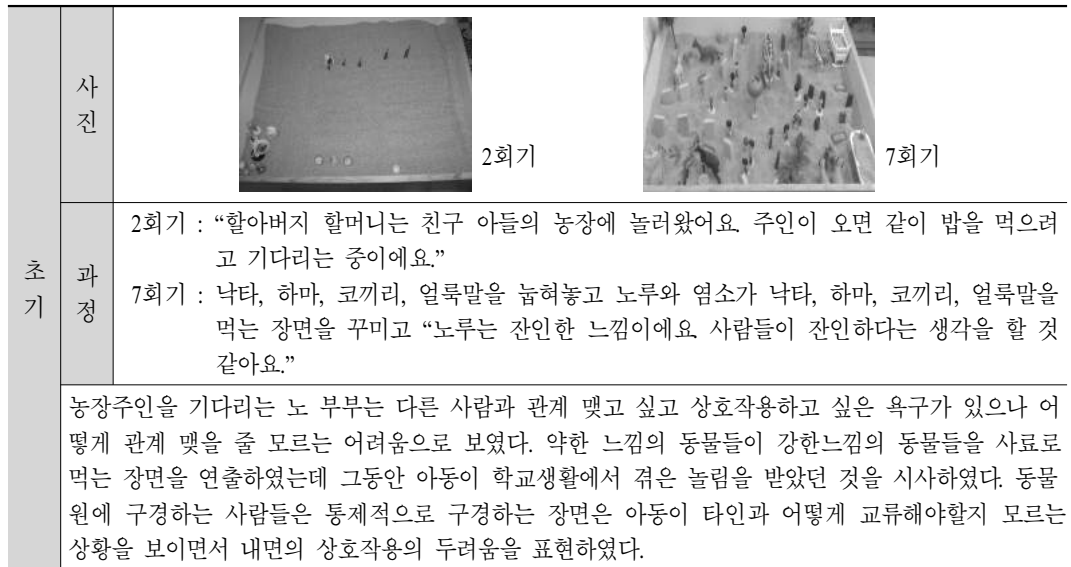 사
진
2회기
7회기
초
기
과
정
2회기 : “할아버지 할머니는 친구 아들의 농장에 놀러왔어요. 주인이 오면 같이 밥을 먹으려
고 기다리는 중이에요.”
7회기 : 낙타, 하마, 코끼리, 얼룩말을 눕혀놓고 노루와 염소가 낙타, 하마, 코끼리, 얼룩말을
먹는 장면을 꾸미고 “노루는 잔인한 느낌이에요. 사람들이 잔인하다는 생각을 할 것
같아요.”
농장주인을 기다리는 노 부부는 다른 사람과 관계 맺고 싶고 상호작용하고 싶은 욕구가 있으나 어
떻게 관계 맺을 줄 모르는 어려움으로 보였다. 약한 느낌의 동물들이 강한느낌의 동물들을 사료로
먹는 장면을 연출하였는데 그동안 아동이 학교생활에서 겪은 놀림을 받았던 것을 시사하였다. 동물
원에 구경하는 사람들은 통제적으로 구경하는 장면은 아동이 타인과 어떻게 교류해야할지 모르는
상황을 보이면서 내면의 상호작용의 두려움을 표현하였다.